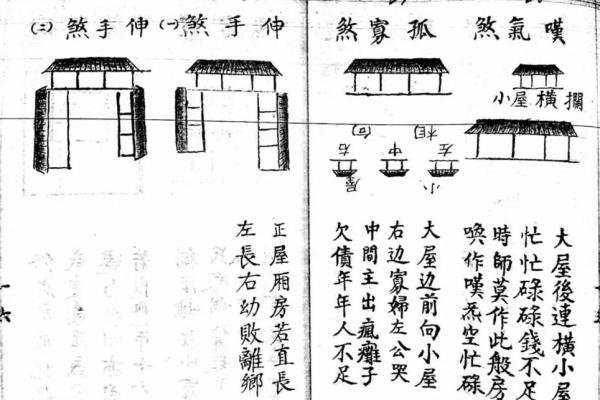 嘆氣煞
小屋橫攔
大屋後連橫小屋
忙忙碌碌錢不足
時師莫作此般房
喚作嘆炁空忙碌
孤寡煞
左 中 右
小屋
相向
大屋边前向小屋
右边寡婦左公哭
中間主出瘋癱子
欠債年年人不足
伸手煞㈠
伸手煞㈡
正屋厢房若直長
左長右幼敗離鄉
一六